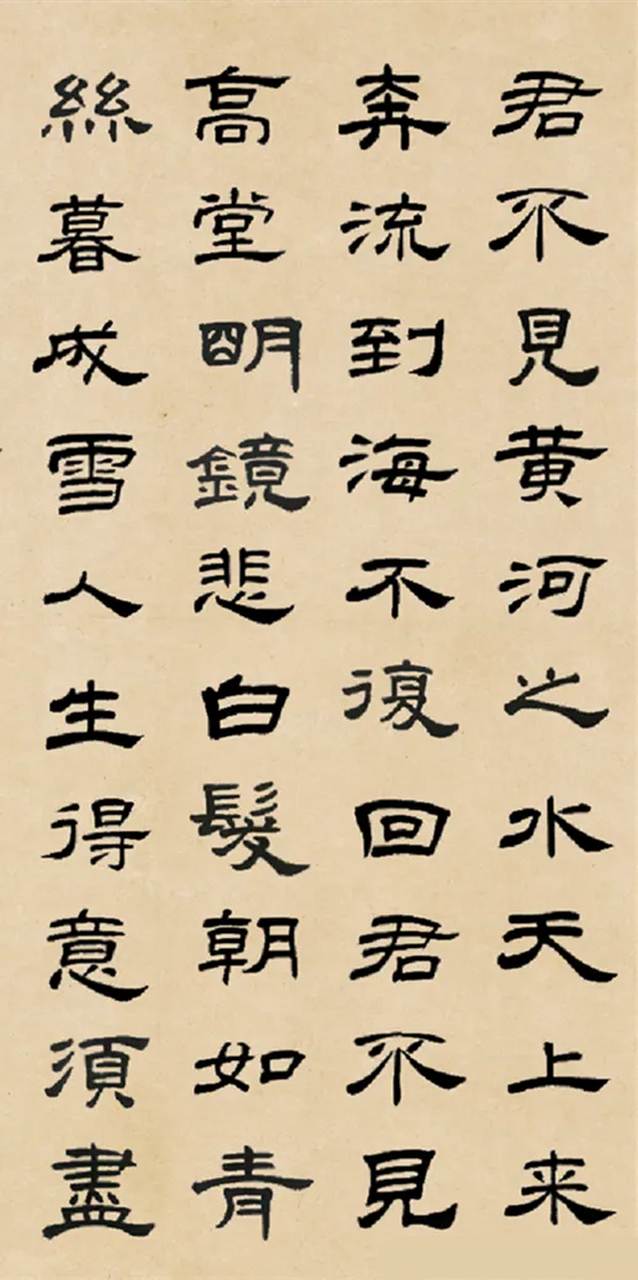 君不見黃河之水天上来
奔流到海不復回君不見
高堂明鏡悲白髮朝如青
絲暮成雪人生得意須盡